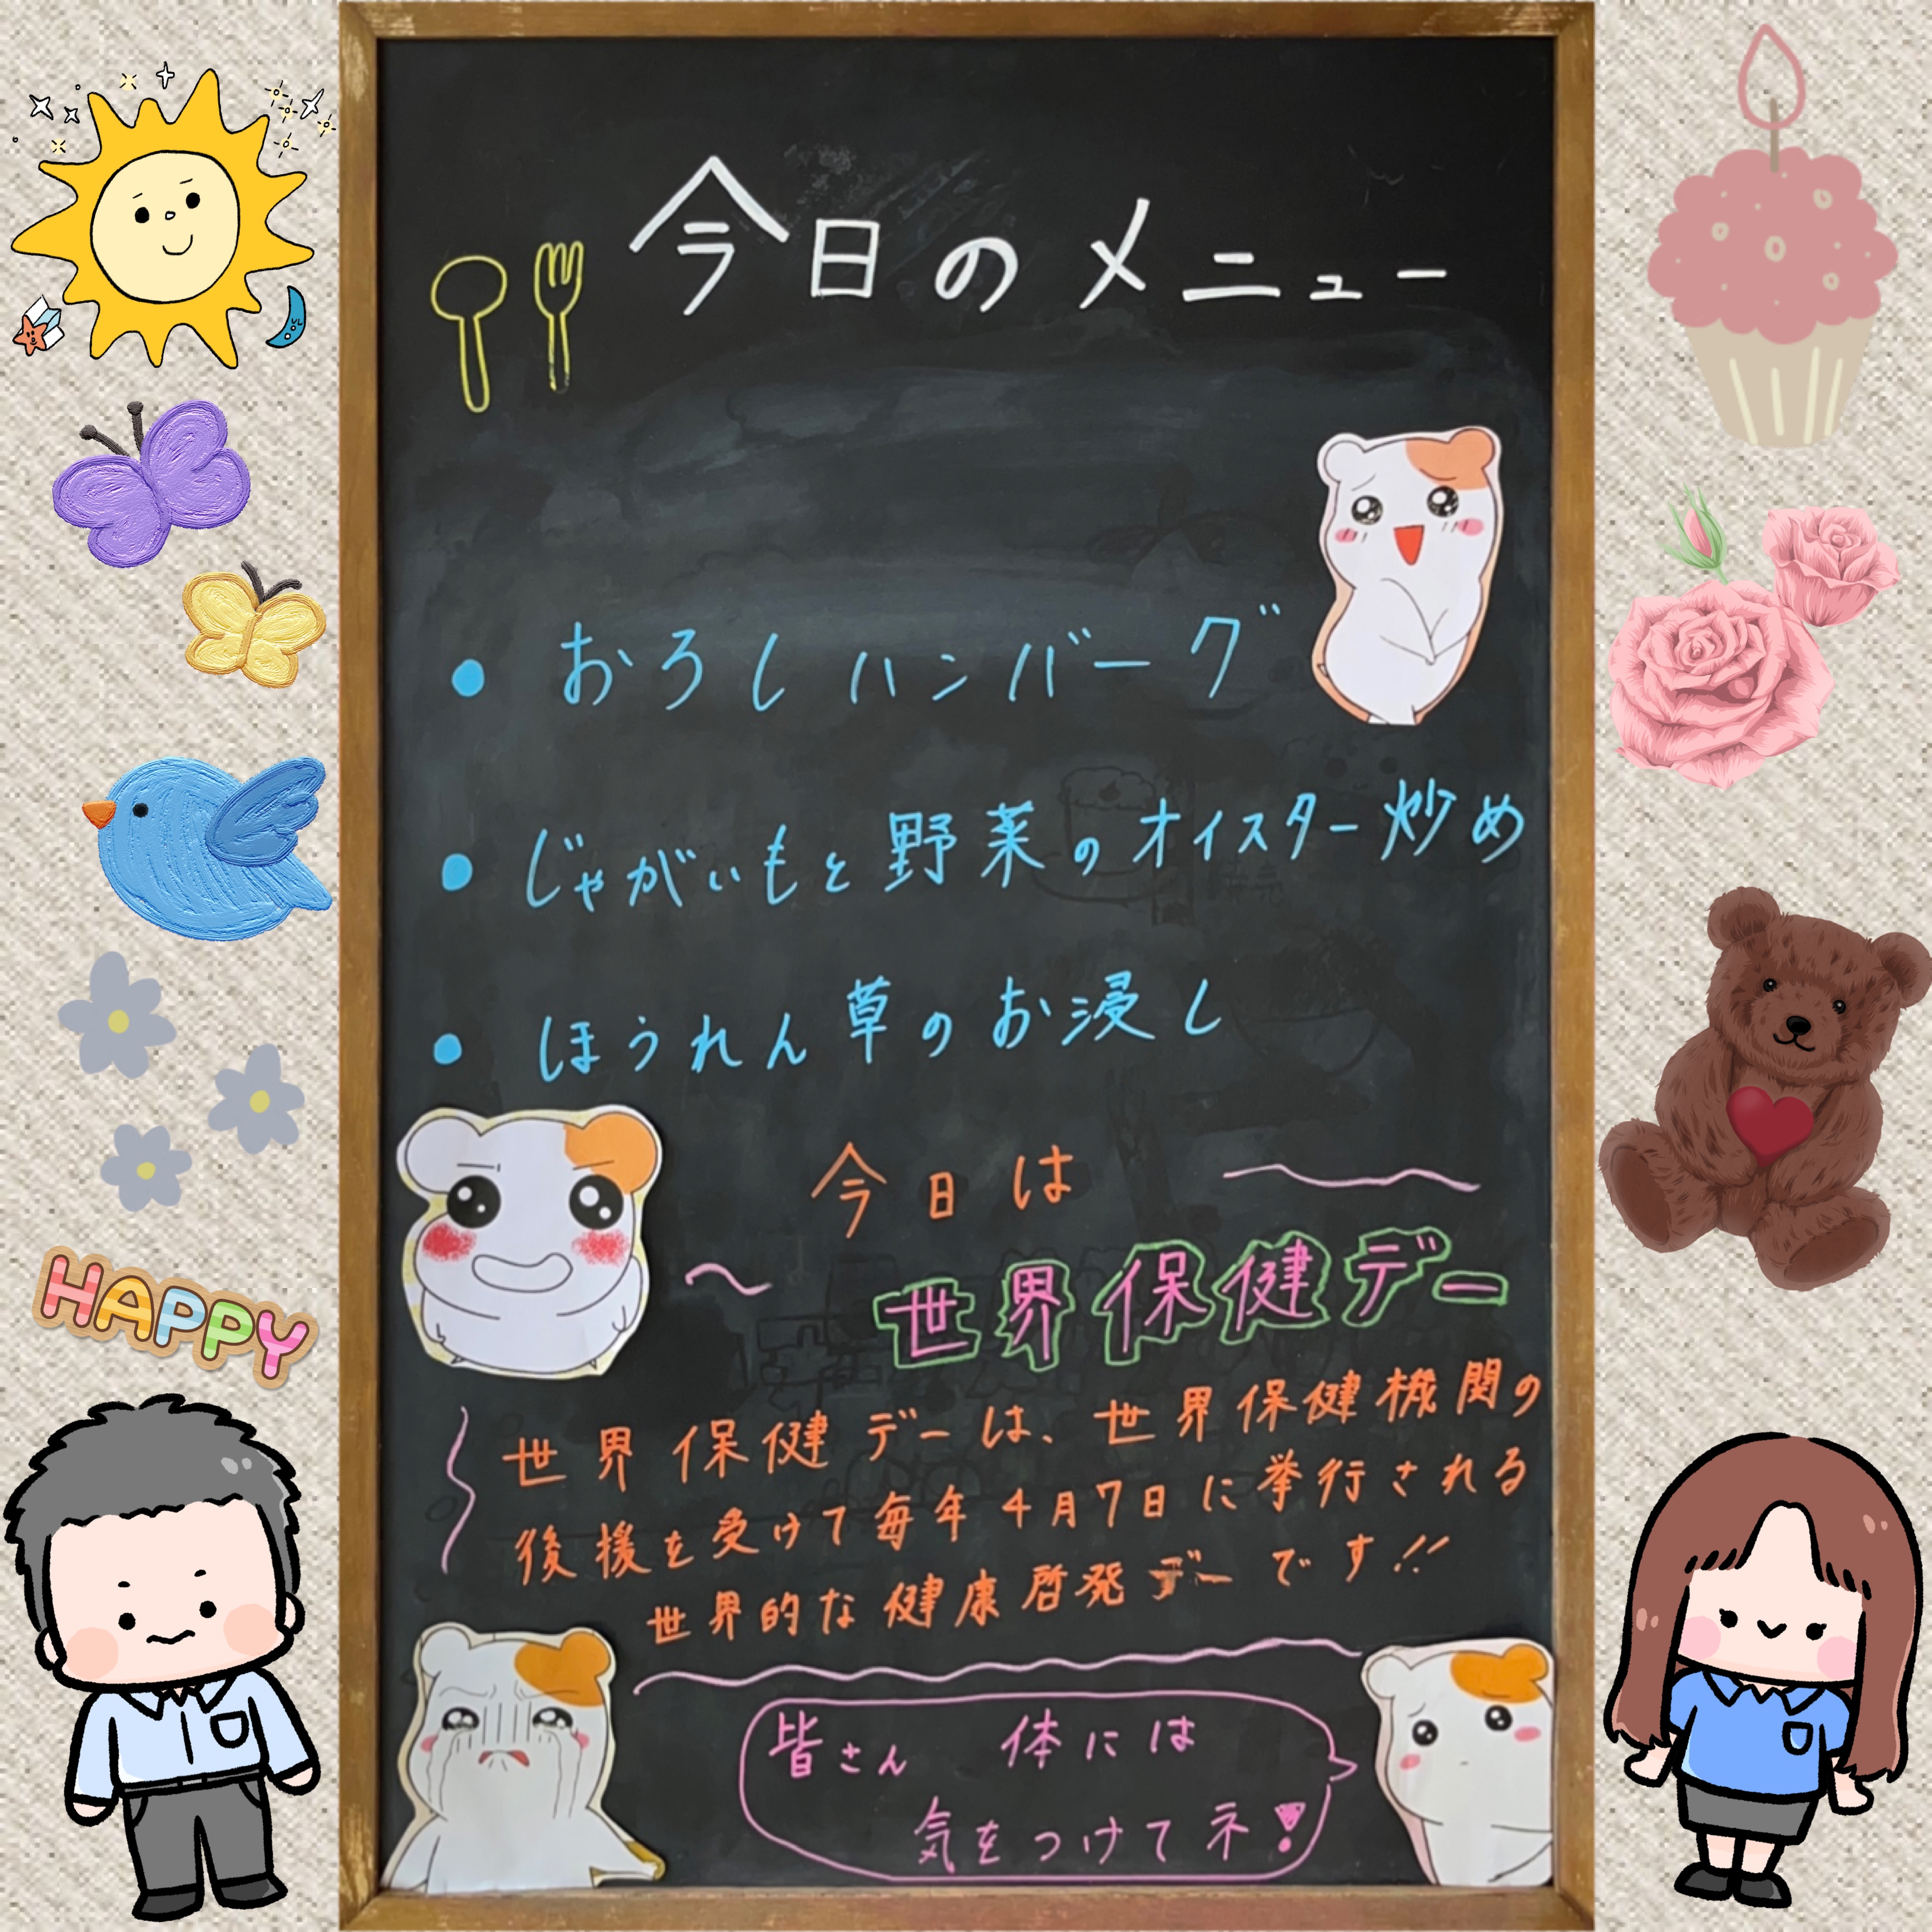 今日のメニュー
• おろしハンバーグ
• じゃがいもと野菜のオイスター炒め
• ほうれん草のお浸し
今日は
～世界保健デー
世界保健デーは、世界保健機関の
後援を受けて毎年4月7日に挙行される
世界的な健康啓発デーです!!
皆さん 体には
気をつけてネ!
HAPPY